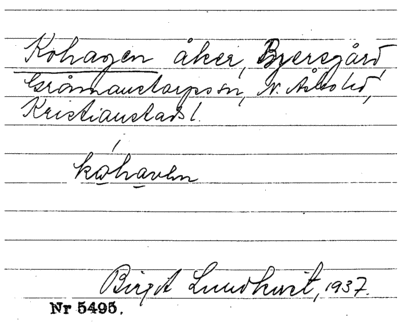 Kohagen åker, Byersgård,
Gråmanstorps sn, N. Åsbo hd,
Kristianstads l.
kohaven
Birgit Lundkvist, 1937.
Nr 5495.